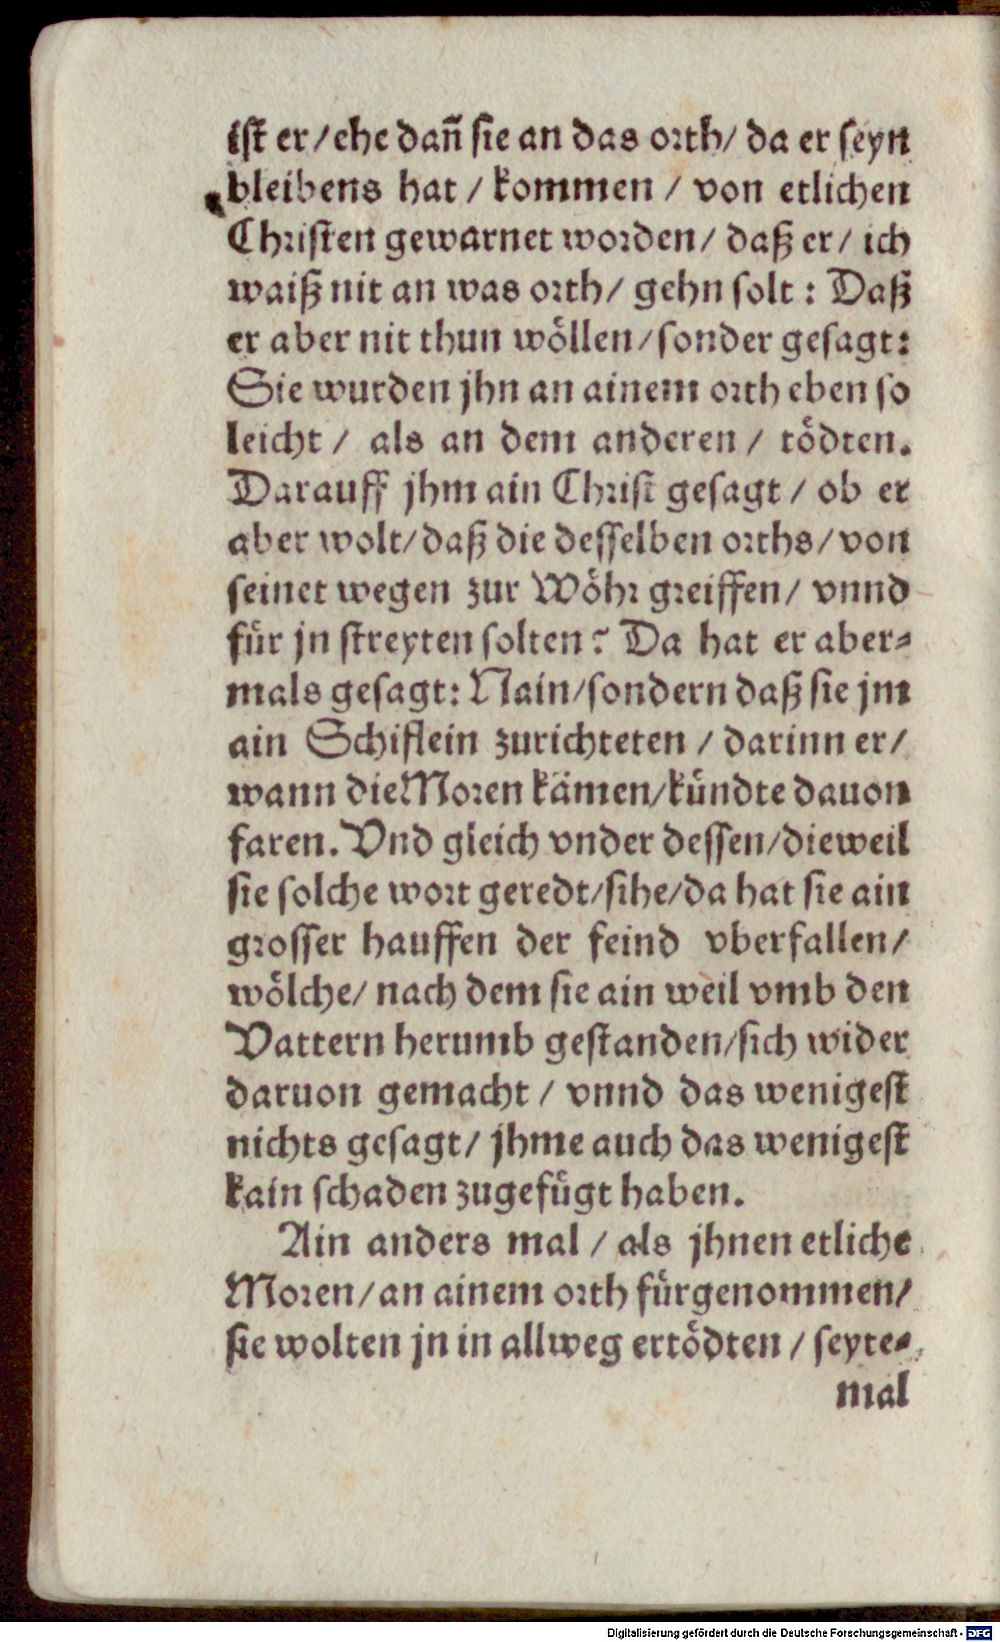 ist er / ehe dañ sie an das orth / da er seyn
bleibens hat / kommen / von etlichen
Christen gewarnet worden / daß er / ich
waiß nit an was orth / gehn solt : Daß
er aber nit thun wöllen / sonder gesagt :
Sie wurden jhn an ainem orth eben so
leicht / als an dem anderen / tödten.
Darauff jhm ain Christ gesagt / ob er
aber wolt / daß die desselben orths / von
seinet wegen zur Wöhr greiffen / vnnd
für jn streyten solten ? Da hat er aber⸗
mals gesagt : Nain / sondern daß sie jm
ain Schiflein zurichteten / darinn er /
wann die Moren kämen / kündte dauon
faren. Vnd gleich vnder dessen / dieweil
sie solche wort geredt / sihe / da hat sie ain
grosser hauffen der feind vberfallen /
wölche / nach dem sie ain weil vmb den
Vattern herumb gestanden / sich wider
daruon gemacht / vnnd das wenigest
nichts gesagt / jhme auch das wenigest
kain schaden zugefügt haben.
Ain anders mal / als jhnen etliche
Moren / an ainem orth fürgenommen /
sie wolten jn in allweg ertödten / seyte⸗
mal
Digitalisierung gefördert durch die Deutsche Forschungsgemeinschaft - DFG